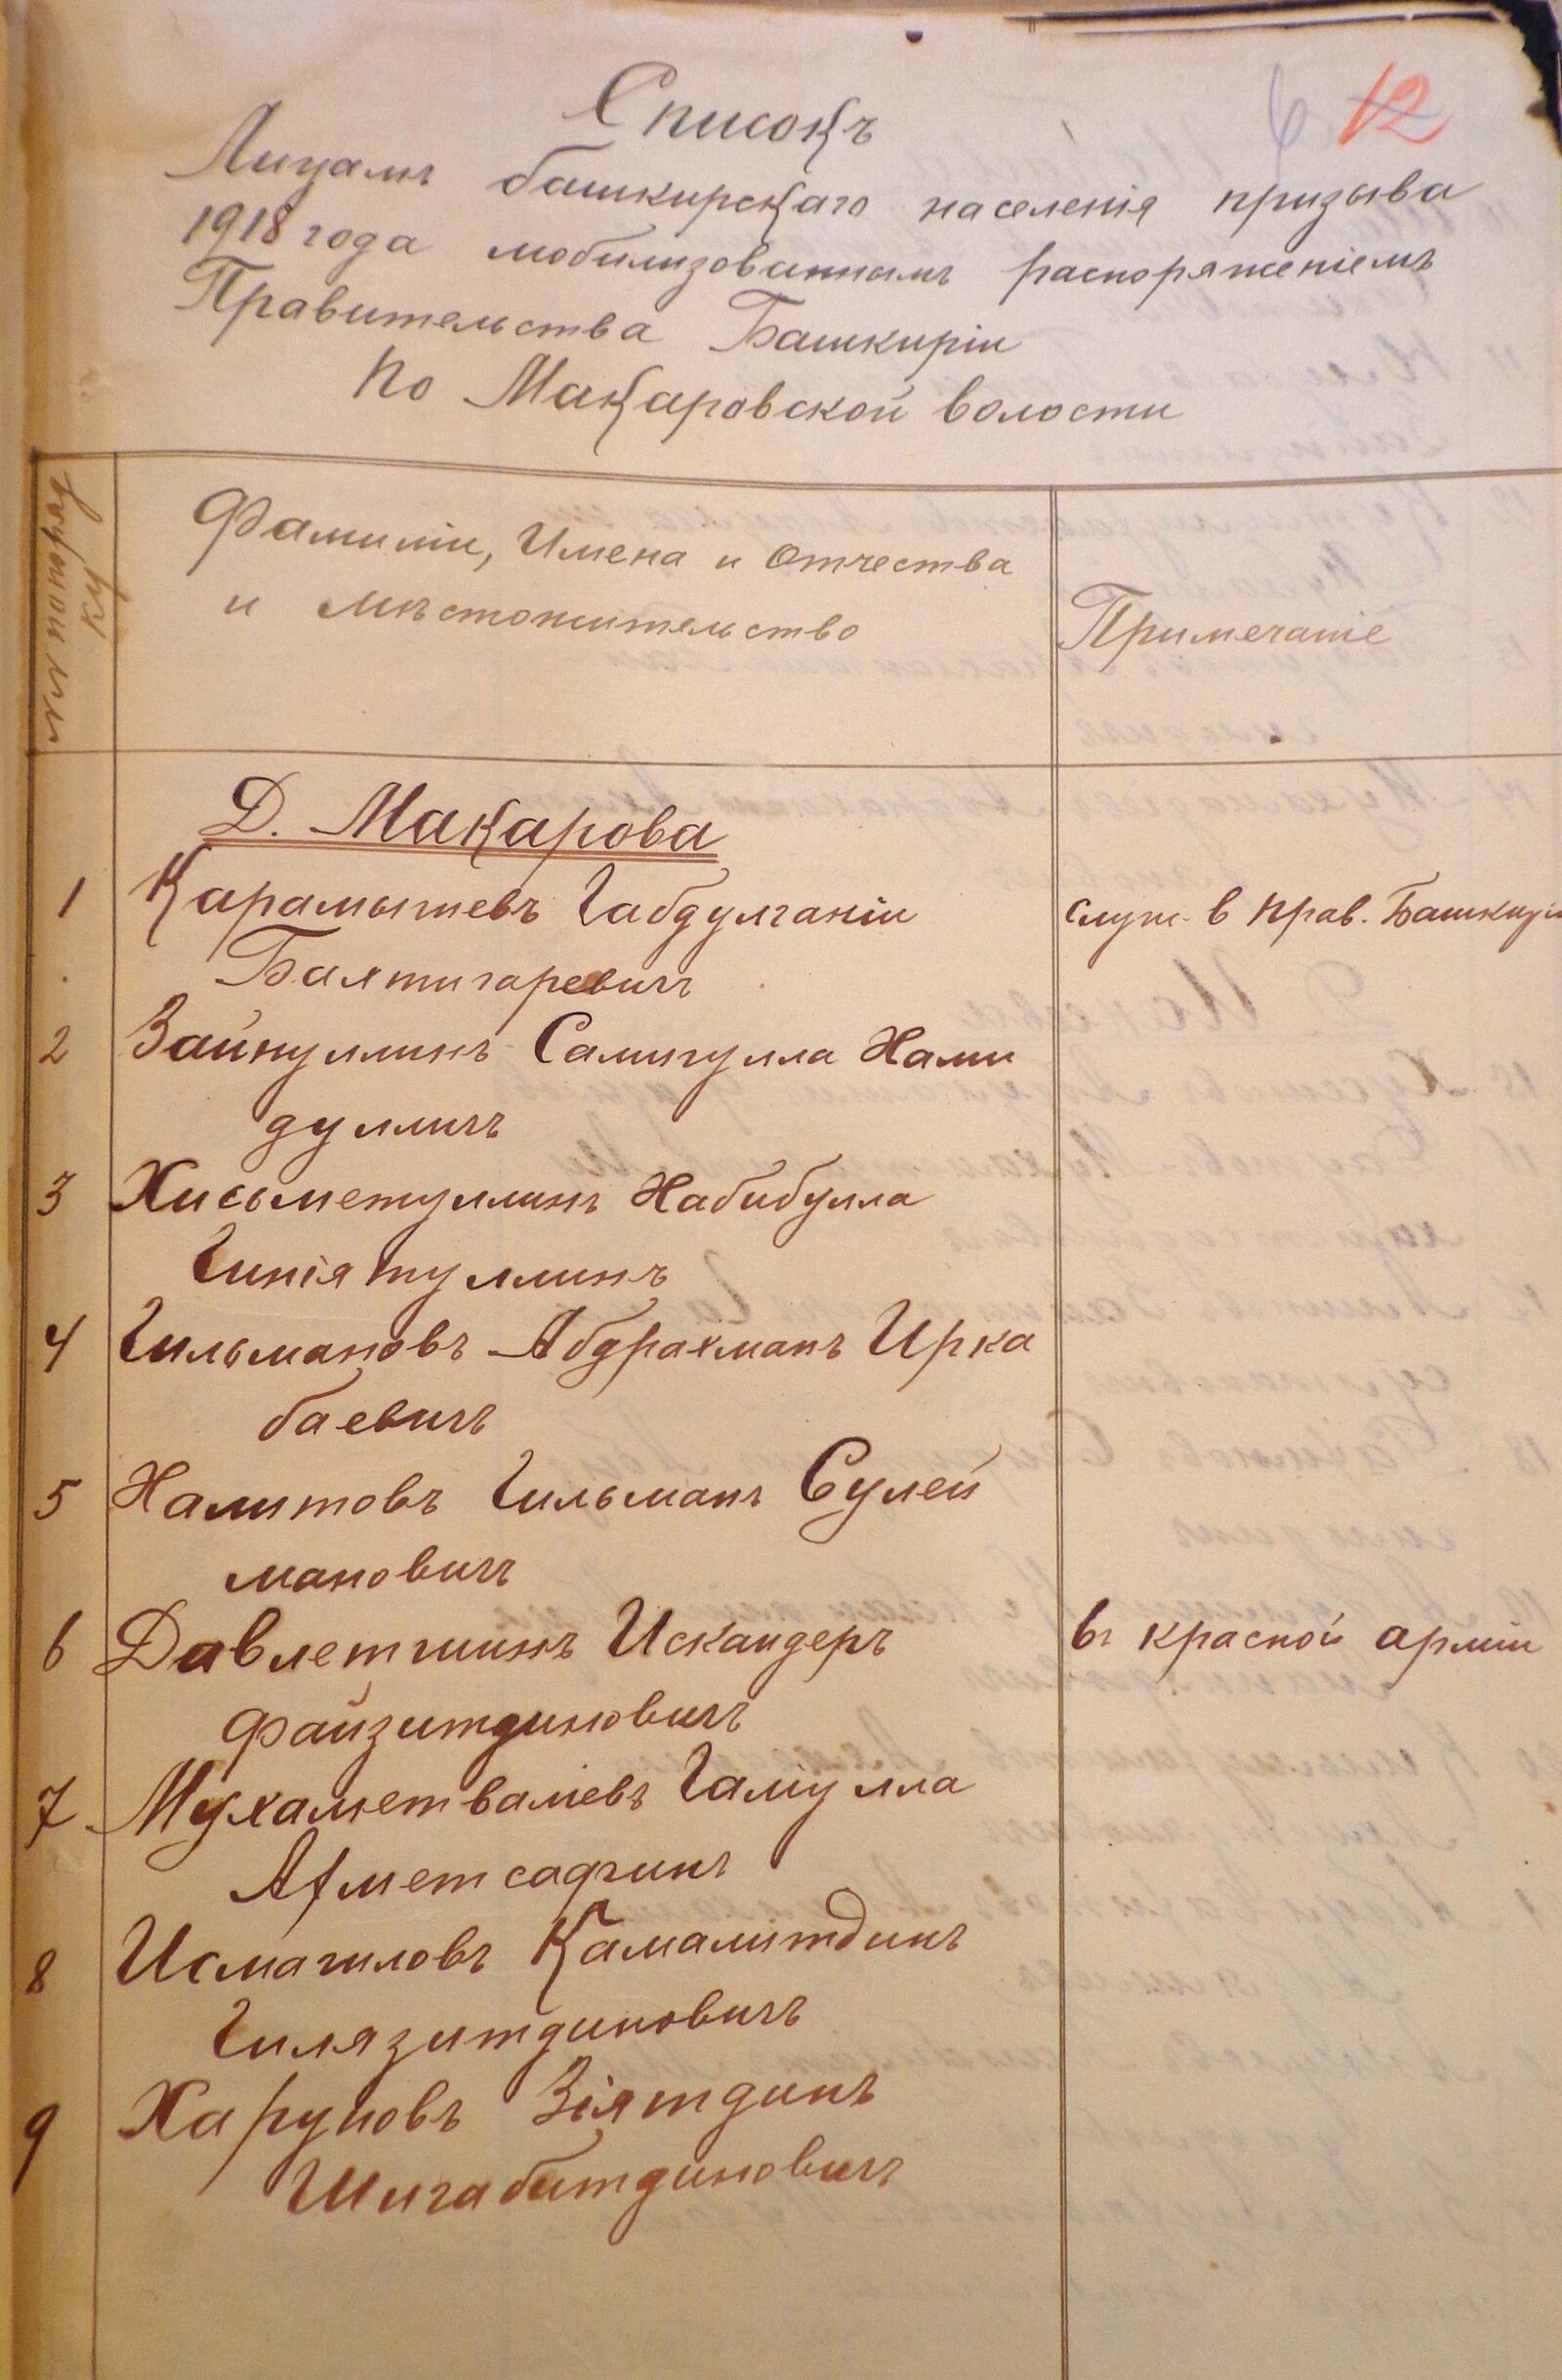 6 12
Списокъ
Лицамъ башкирскаго населенія призыва
1918 года мобилизованнымъ распоряженіемъ
Правительства Башкиріи
По Макаровской волости
Фамиліи, Имена и Отчества
и мѣстожительство
Примечаніе
Д. Макарова
1 Карамышевъ Габдулганіи служ. в прав. Башкиріи
Бахтигаревичъ
2 Зайнуллинъ Самигулла Хами
дуллинъ
3 Хисьметуллинъ Хабибулла
Гиніятуллинъ
4 Гильмановъ Абдрахманъ Ирка
баевичъ
5 Халитовъ Гильманъ Сулей
мановичъ
6 Давлетшинъ Искандеръ въ красной арміи
Файзитдиновичъ
7 Мухаметваліевъ Галіулла
Ахметсадчинъ
8 Исмагиловъ Камалитдинъ
Гилязитдиновичъ
9 Харуновъ Зіятдинъ
Шигабитдиновичъ